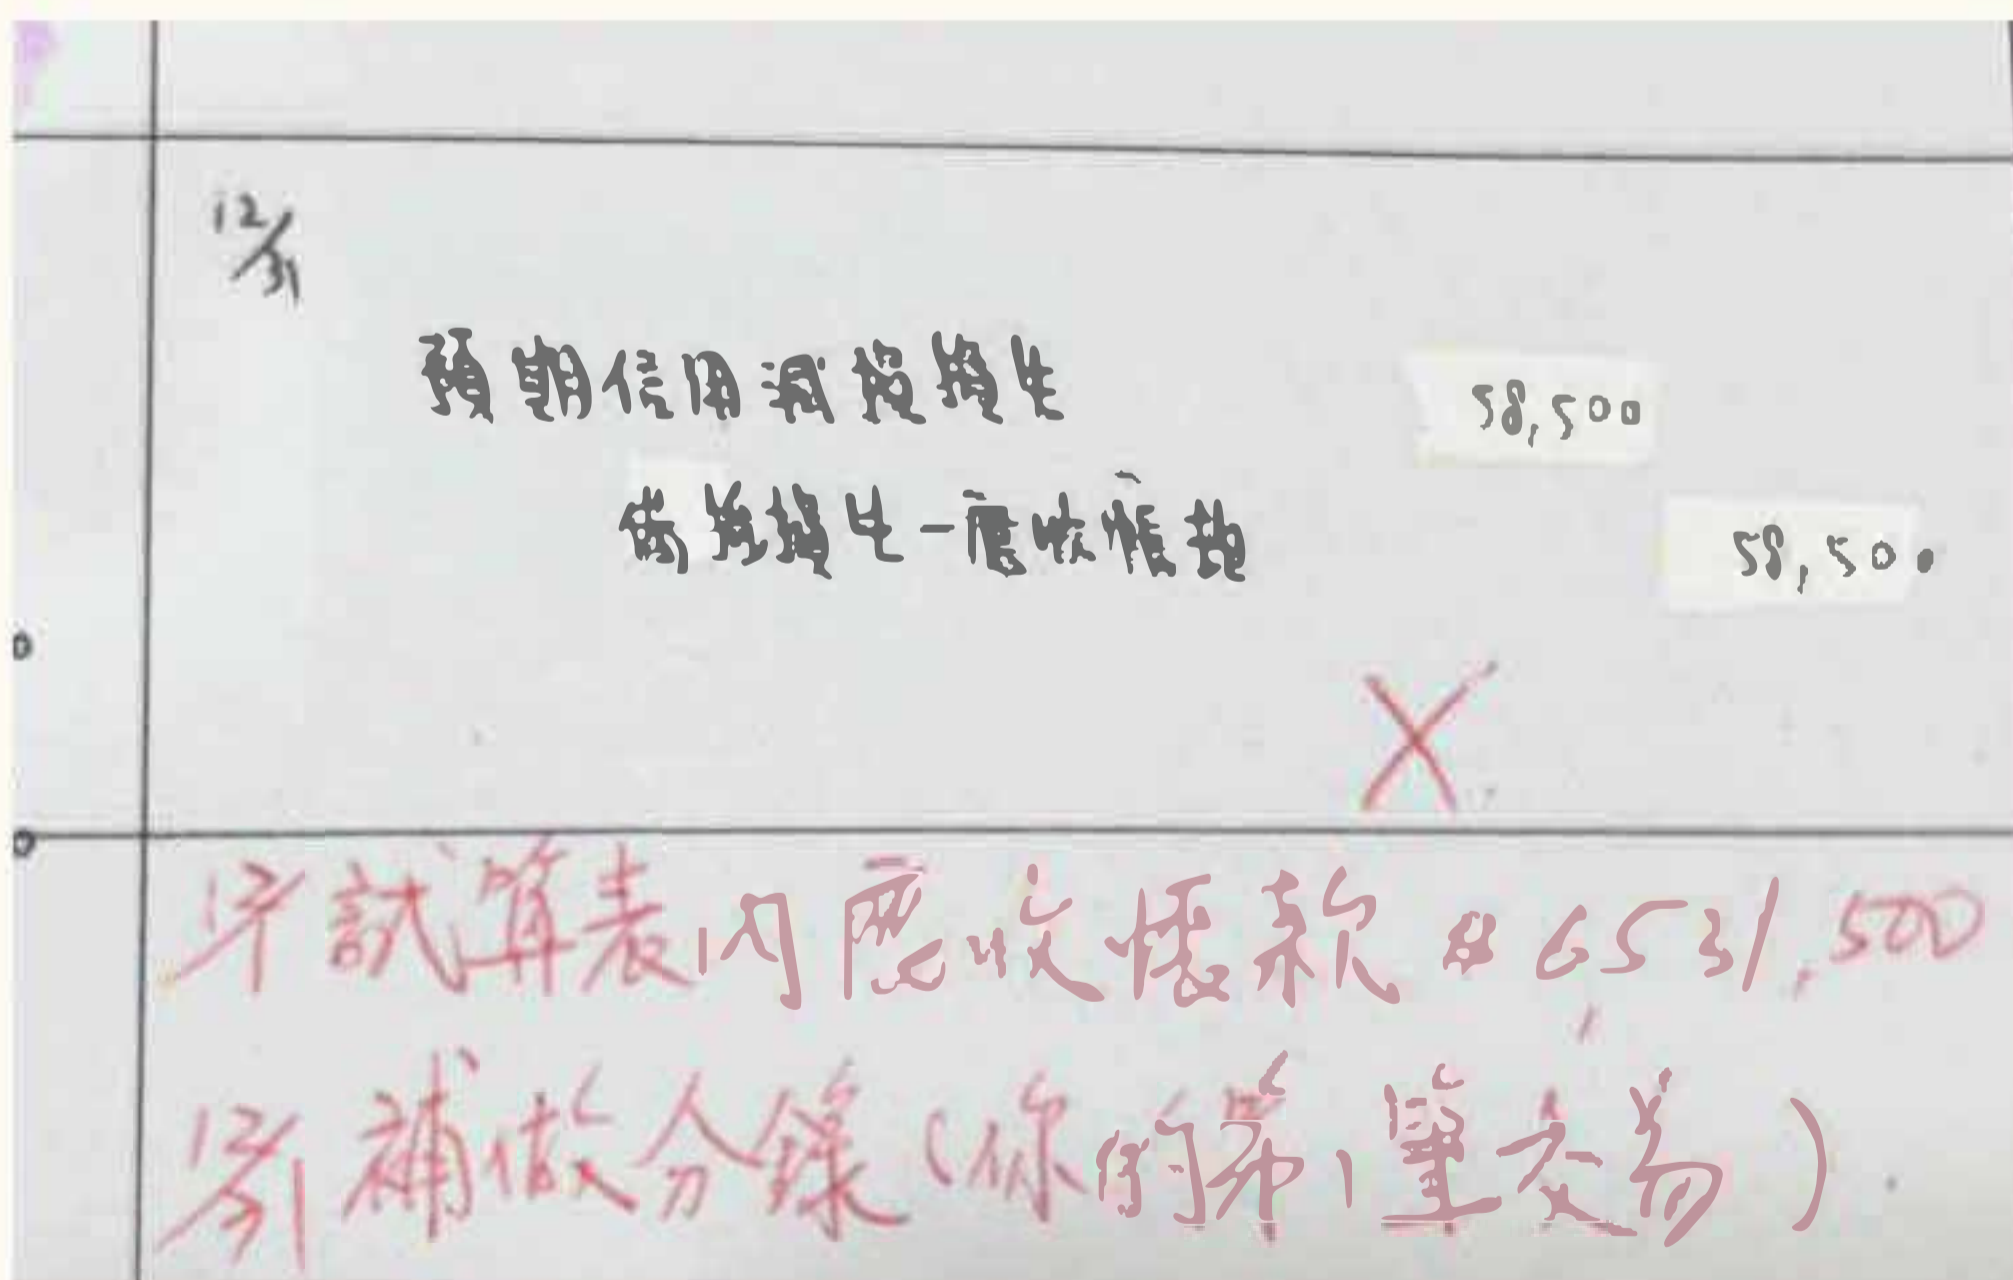 12/31
預期信用減損損失 58,500
備抵損失-應收帳款 58,500
X
試算表內應收帳款 6,531,500
12/31 補做分錄(你的第1筆交易)